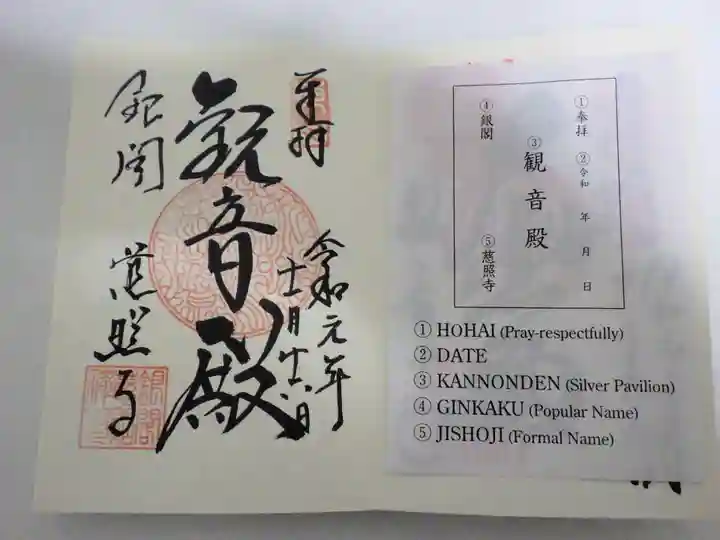 奉拝
令和元年
十一月廿六日
観音殿
銀閣
慈照寺
①奉拝 ②令和 年 月 日
③観音殿
④銀閣 ⑤慈照寺
① HOHAI (Pray-respectfully)
② DATE
③ KANNONDEN (Silver Pavilion)
④ GINKAKU (Popular Name)
⑤ JISHOJI (Formal Name)